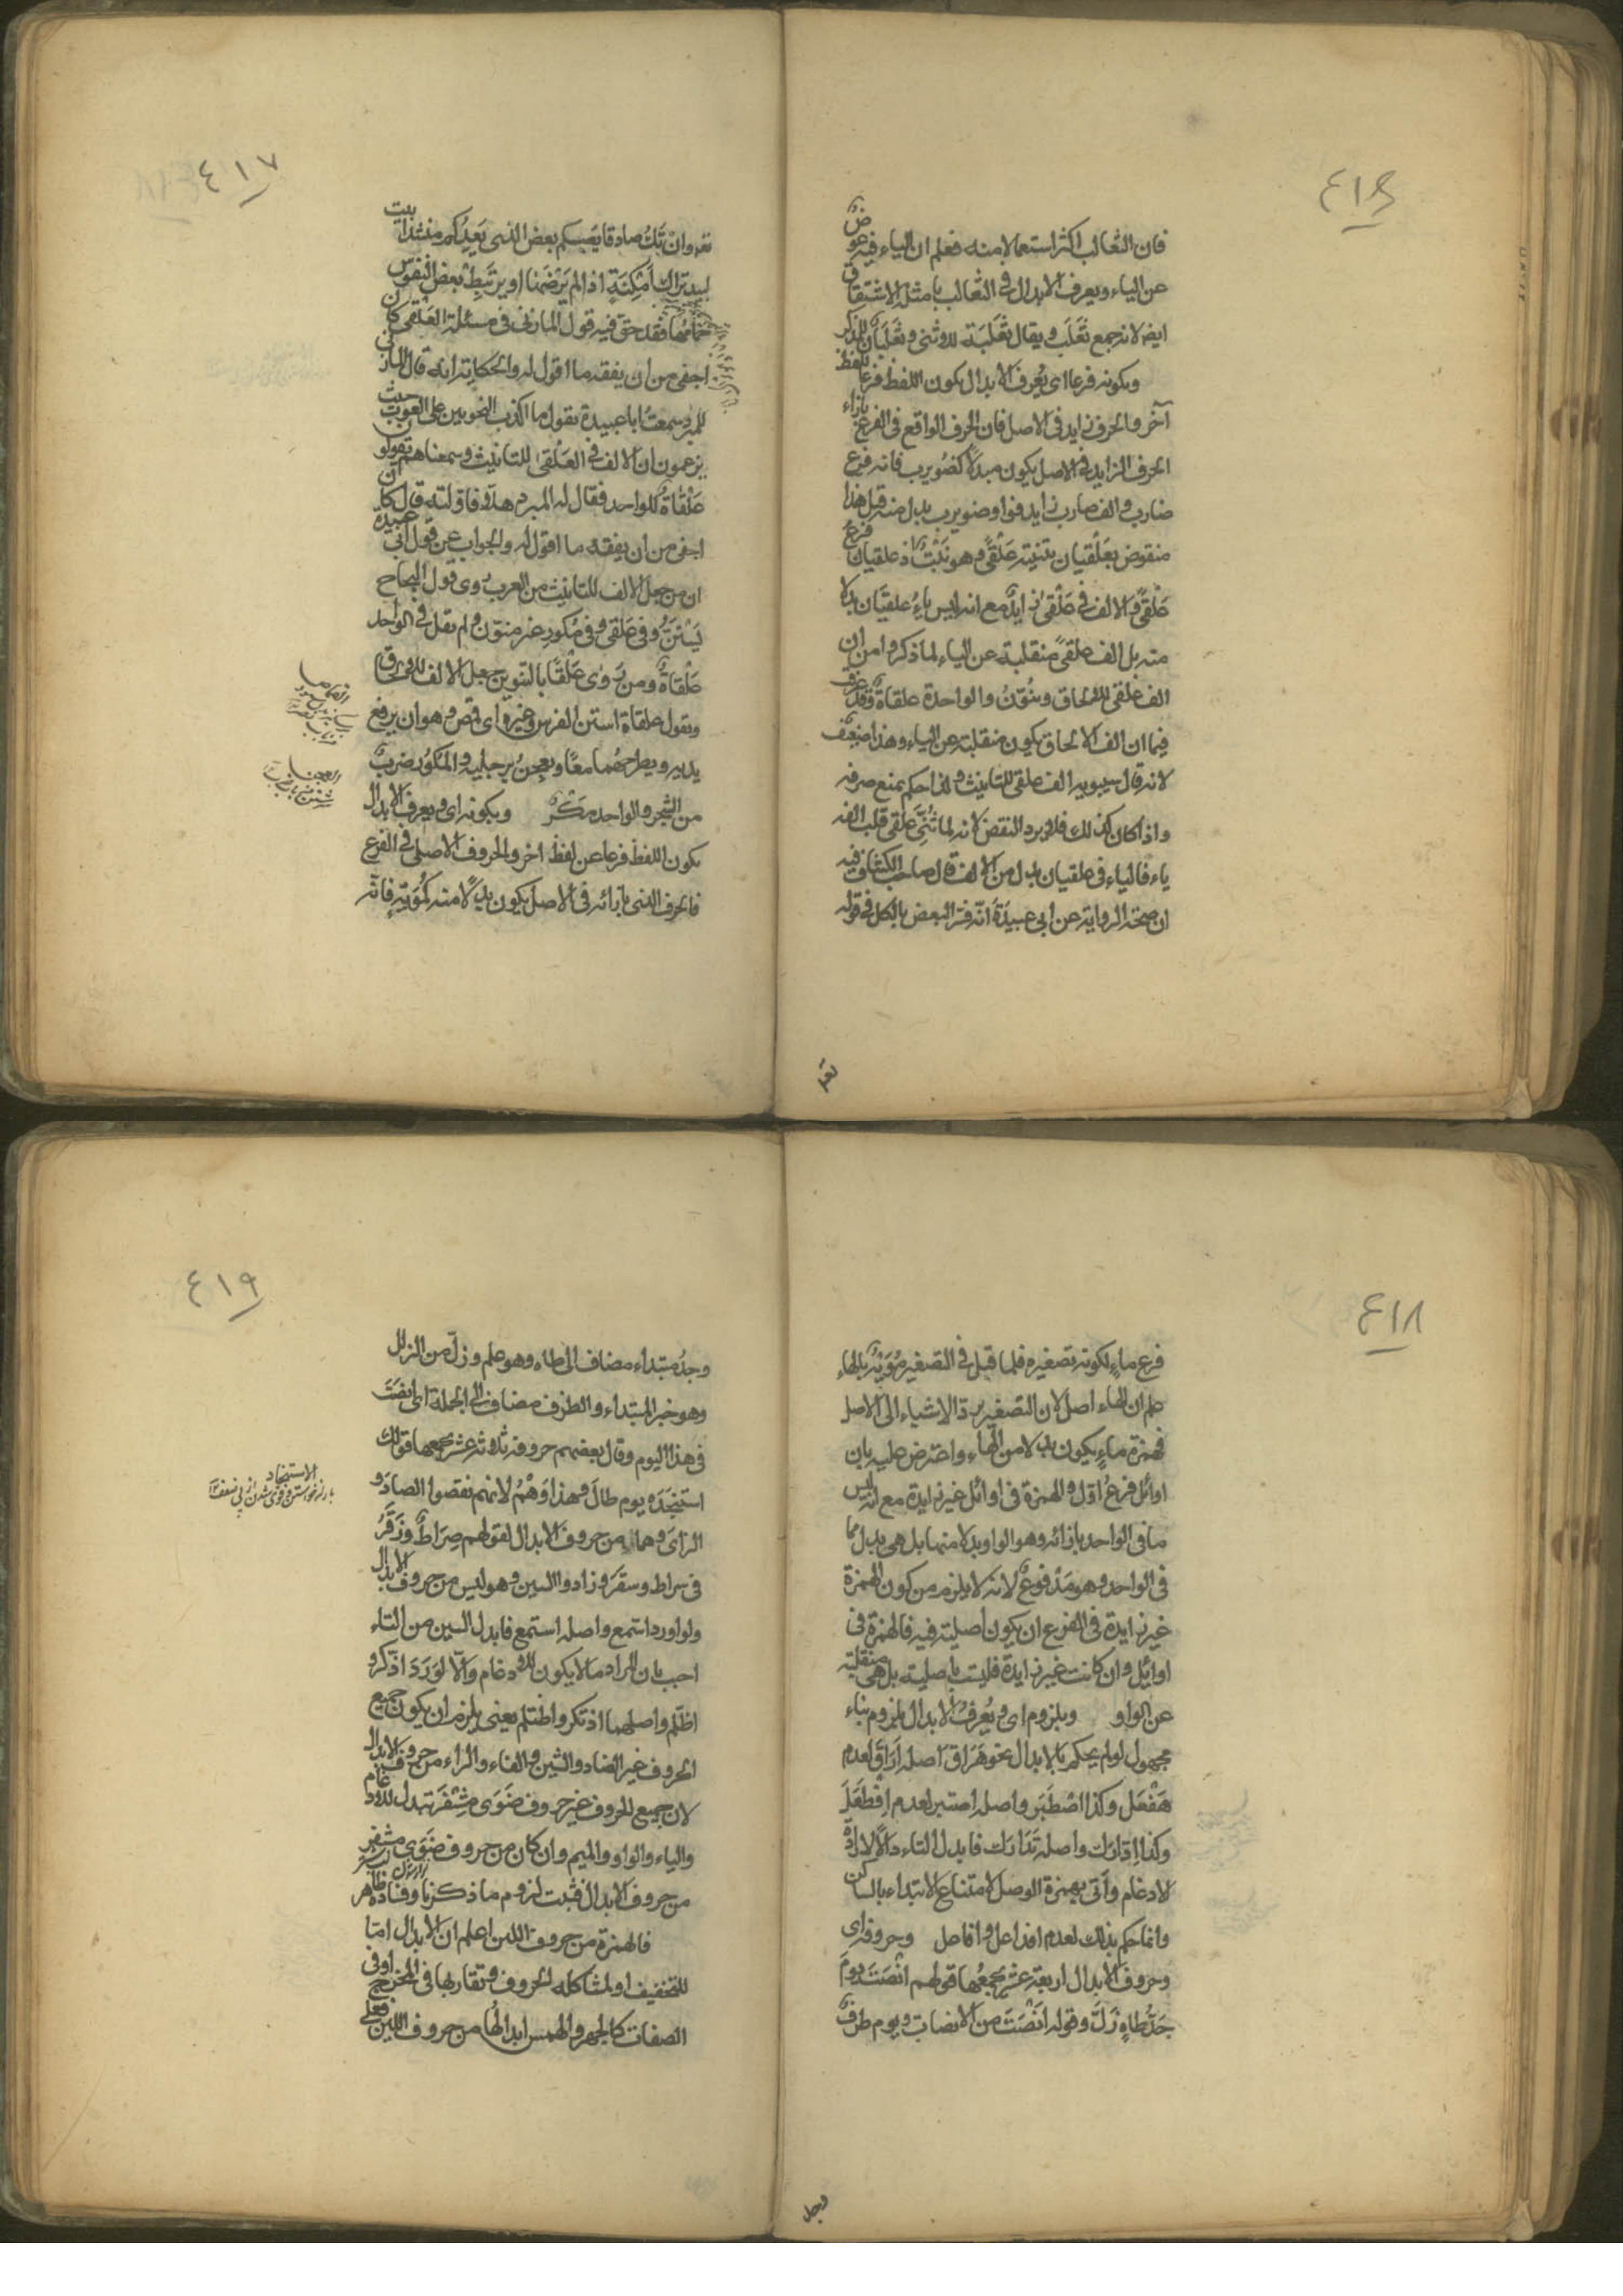 ٤١٦
فان الثعالب اكثر استعمالا منه فعلم ان الياء فيه عوض
عن الياء ويعرف الابدال فى الثعالب بامثلة الاشتقاق
ايضا لانه جمع ثعلب ويقال ثَعْلَبَة للانثى وثعلبان للذكر
وبكونه فرعا اى يُعرف الابدال بكون اللفظ فرعا للفظ
آخر والحرف زايد فى الاصل فان الحرف الواقع فى الفرع بازاء
الحرف الزايد فى الاصل يكون مبدلا كضُويرب فانه فرع
ضارب والف ضارب زايد فواو ضويرب بدل منه قيل هذا
منقوض بعَلْقيان بتثنية عَلْقًى وهو نَبْتٌ اذ علقيان فرع
عَلْقًى والالف فى عَلْقى زايدٌ مع انه ليس ياءُ علقيَان بدلا
منه بل الف علقًى منقلبة عن الياء لما ذكروا من ان
الف علقى للالحاق وينُوّنُ والواحدة علقاةٌ وقد عرف
فيما ان الف الالحاق يكون منقلبة عن الياء وهذا ضعيف
لانه قال سيبويه الف علقى للتانيث ولذا حكم بمنع صرفه
واذا كان كذلك فلا يرد النقض لانه لما ثُنِّىَ علقى قلب الفه
ياء فالياء فى علقيان بدل من الالف قال صاحب الكشاف فيه
ان صحة الرواية عن ابى عبيدَة انّه فسّر البعض بالكل فى قوله
٤١٧
تعه وانْ يَكُ صادقا يُصِبكم بعض الذى يَعِدُكم منشدا بيت
لبيد تراك أَمْكِنَةٍ اذا لم يَرْضَهَا او يرتَبِطْ بعضَ النفوس
حمامُها فقد حق فيه قول المازنى فى مسئلة العَلْقى كان
اجفى من ان يفقه ما اقول له والحكاية انه قال المازنى
للمبرد سمعتُ ابا عبيدة يقول ما اكذب النحويين على العرب حيث
يزعمون ان الالف فى العَلْقى للتانيث وسمعناهم يقولون
عَلْقاةٌ للواحد فقال له المبرد هلا فاوَلته قال كان
اجفى من ان يفقه ما اقول له والجواب عن قول ابى عبيدة
ان من جعل الالف للتانيث من العرب روى قول العجاج
يَسْتَنّ فى عَلْقى وفى مُكورِ غير منوّن ولم يقل فى الواحد
عَلْقاةٌ ومن رَوى عَلْقًا بالتنوين جعل الالف للالحاق
ويقول علقاة استن الفرس وغيره اى قمص وهو ان يرفع
يديه ويطرحهُما معًا ويعجن برجليه والمكوُر ضربٌ
من الشجر والواحد مَكْرٌ وبكونه اى ويعرف الابدال
بكون اللفظ فرعا عن لفظ اخر والحروف الاصلى فى الفرع
فالحرف الذى بازائه فى الاصل يكون بدلًا منه كمُوَيْهٍ فانّه
٤١٨
فرع ماءٍ لكونه تصغيره فلما قيل فى التصغير مُوَيْهٌ بالهاء
علم ان الهاء اصل لان التصغير يردّ الاشياء الى الاصل
فهمزة ماءٍ يكون بدلا من الهاء واعترض عليه بان
اوائل فرعُ اوّل والهمزة فى اوائل غير زايدة مع انه ليس
ما فى الواحد بازائه وهو الواو بدلا منها بل هى بدل مما
فى الواحد وهو مَدْفوعٌ لانه لا يلزم من كون الهمزة
غير زايدة فى الفرع ان يكون اصليته فيه فالهمزة فى
اوائل وان كانت غير زايدة فليست باصلية بل هى منقلبة
عن الواو وبلزوم اى ويُعرفُ الابدال بلزوم بناء
مجهول لو لم يحكم بالابدال نحو هَرَاق اصله اَرَاقَ لعدم
هَفْعَل وكذا اصْطَبَر واصله اصتبر لعدم اِفْطَعَلَ
وكذا اِدّارَك واصله تَدَارَك فابدل التاء دالًا لارادة
الادغام واُتى بهمزة الوصل لامتناع الابتداء بالساكن
وانما حكم بذلك لعدم افداعل وافاعل وحروفه اى
وحروف الابدال اربعة عشر يجمعُها قولهم انْصَتَ يَومَ
جَدُّ طاهٍ زَلَّ وقوله اَنْصَتَ من الانصات ويوم ظرفٌ
وجد
٤١٩
وجدُ مبتداء مضاف الى طاه وهو علم وزلّ من الزلل
وهو خبر المبتداء والظرف مضاف الى الجملة اى انصَتَ
فى هذا اليوم وقال بعضهم حروفه ثلاثة عشر يجمعها قولك
استنجَدَه يوم طالَ وهذا وَهْمٌ لانهم نقصوا الصادَ و
الزاىَ وهما من حروف الابدال لقولهم صِرَاطٌ وزَقَرُ
فى سراط وسقرَ وزادوا السين وهو ليس من حروف الابدال
ولو اورد استمع واصله استمع فابدل السين من التاء
اجيب بان المراد ما لا يكون للادغام والّا لوَرَدَ اذّكر و
اظّلم واصلهما اذتكر واظتلم يعنى يلزم ان يكون جميع
الحروف غير الضاد والشين والفاء والراء من حروف الابدال
لان جميع الحروف غير حروف ضَوَى مِشْفَر تبدل للادغام
والياء والواو والميم وان كان من حروف ضَوَى مشفر
من حروف الابدال فثبت لزوم ما ذكرنا وفساده ظاهر
فالهمزة من حروف اللين اعلم ان الابدال امّا
للتخفيف او لمشاكلة الحروف وتقاربها فى المخرج او فى
الصفات كالجهر والهمس ابدالُها من حروف اللين فعلى
الاستنجاد